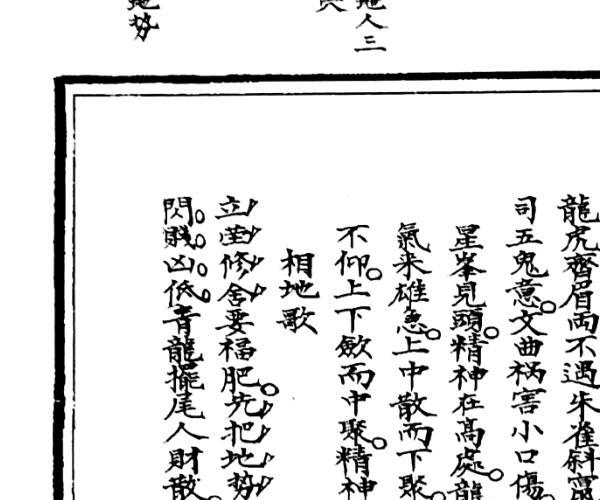 龍虎齊眉両不遇朱雀斜
司五鬼意文曲祸害小口傷
星峯見頭精神在高處龍
氣来雄急上中散而下聚
不仰上下歛而中聚精神
相地歌
立茔修舍要福肥先把地势
閃賤凶低青龍擺尾人財散
人三
地势